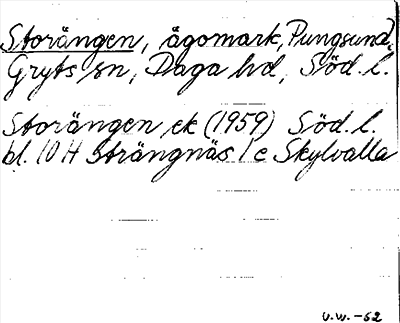 Storängen, ägomark, Pungsund,
Gryts sn, Daga hd, Söd. l.
Storängen ek (1959) Söd. l.
bl. 10 H Strängnäs 1 e Skylvalla
V.W. -62